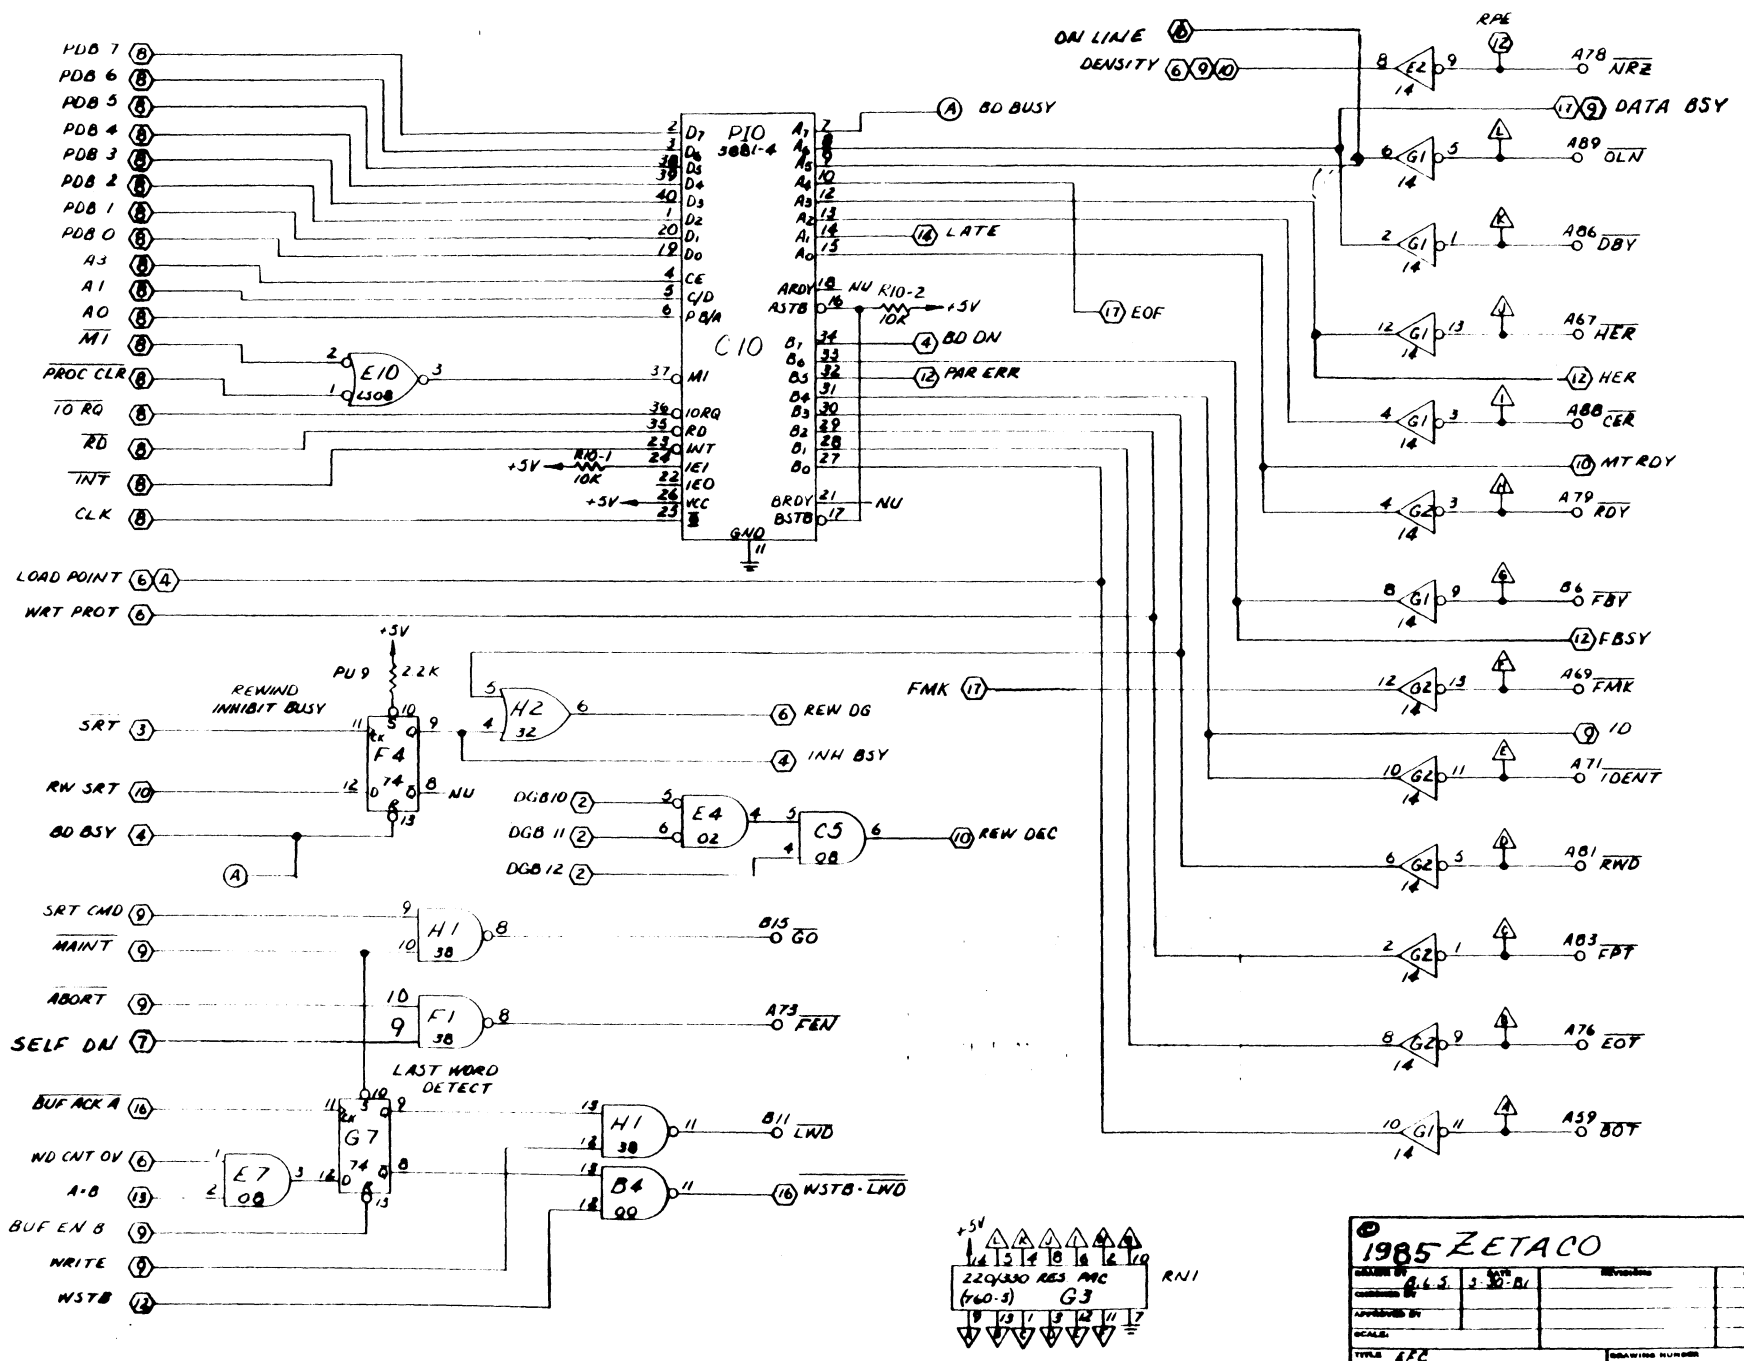 PDB 7 8
PDB 6 8
PDB 5 8
PDB 4 8
PDB 3 8
PDB 2 8
PDB 1 8
PDB 0 8
A3 8
A1 8
A0 8
M1 8
PROC CLR 8
IO RQ 8
RD 8
INT 8
CLK 8
2 1 E10 LS08 3
+5V R10-1 10K
+5V
2 D7
3 D6
38 D5
39 D4
40 D3
1 D2
20 D1
19 D0
4 CE
5 C/D
6 PB/A
37 M1
36 IORQ
35 RD
23 INT
24 IEI
22 IEO
26 VCC
25
PIO
3881-4
C10
GND
11
A7 7
A6 8
A5 9
A4 10
A3 12
A2 13
A1 14
A0 15
ARDY 18 NU
ASTB 16
R10-2
10K
+5V
B7 34
B6 33
B5 32
B4 31
B3 30
B2 29
B1 28
B0 27
BRDY 21 NU
BSTB 17
A BD BUSY
14 LATE
17 EOF
4 BD DN
12 PAR ERR
ON LINE 10
DENSITY 6 9 10
RPE
12
8 E2 9 14 A78 NRZ
17 9 DATA BSY
6 G1 5 14 L A89 OLN
2 G1 1 14 K A86 DBY
12 G1 13 14 J A67 HER
12 HER
4 G1 3 14 I A88 CER
10 MT RDY
4 G2 3 14 H A79 RDY
8 G1 9 14 G B6 FBY
12 FBSY
FMK 17
12 G2 13 14 F A69 FMK
9 ID
10 G2 11 14 E A71 IDENT
6 G2 5 14 D A81 RWD
2 G2 1 14 C A83 FPT
8 G2 9 14 B A76 EOT
10 G1 11 14 A A59 BOT
LOAD POINT 6 4
WRT PROT 6
+5V
PU 9 2.2K
REWIND
INHIBIT BUSY
SRT 3
RW SRT 10
BD BSY 4
A
11 CK S 10 Q 9
F4
12 D 74 Q 8 NU
R 13
5 4 H2 32 6
6 REW DG
4 INH BSY
DGB10 2
DGB 11 2
DGB 12 2
5 6 E4 02 4
5 4 C5 08 6
10 REW DEC
SRT CMD 9
MAINT 9
9 10 H1 38 8
B15 GO
ABORT 9
SELF DN 7
10 9 F1 38 8
A73 FEN
LAST WORD
DETECT
BUF ACK A 16
WD CNT OV 6
A=B 13
BUF EN B 9
WRITE 9
WSTB 12
1 2 E7 08 3
11 CK S 10 Q 9
G7
12 D 74 Q 8
R 13
13 12 H1 38 11
B11 LWD
13 12 B4 00 11
16 WSTB·LWD
+5V
L K J I
14 5 4 8 6 2 10
220/330 RES. PAC
(760-5) G3
RN1
9 13 1 3 12 11 7
1985 ZETACO
DRAWN BY B.G.S.
DATE
REVISIONS
CHECKED BY
APPROVED BY
SCALE:
TITLE
DRAWING NUMBER